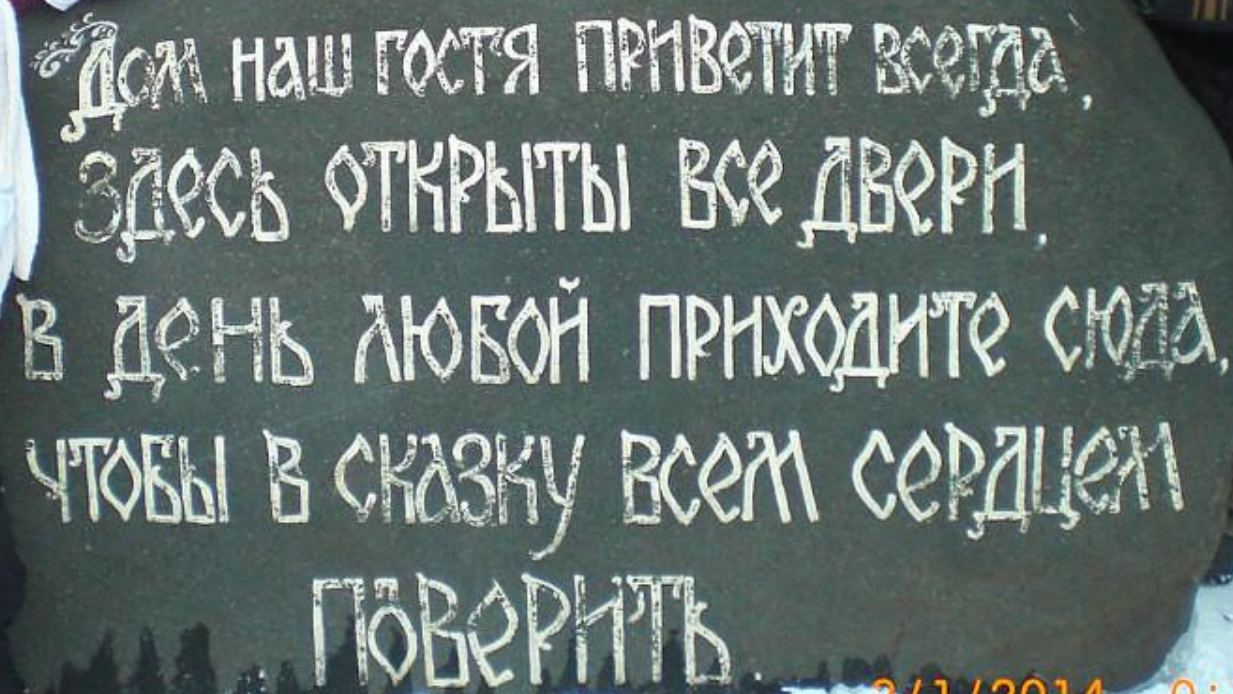 Дом наш гостя приветит всегда,
Здесь открыты все двери,
В день любой приходите сюда,
чтобы в сказку всем сердцем
поверить